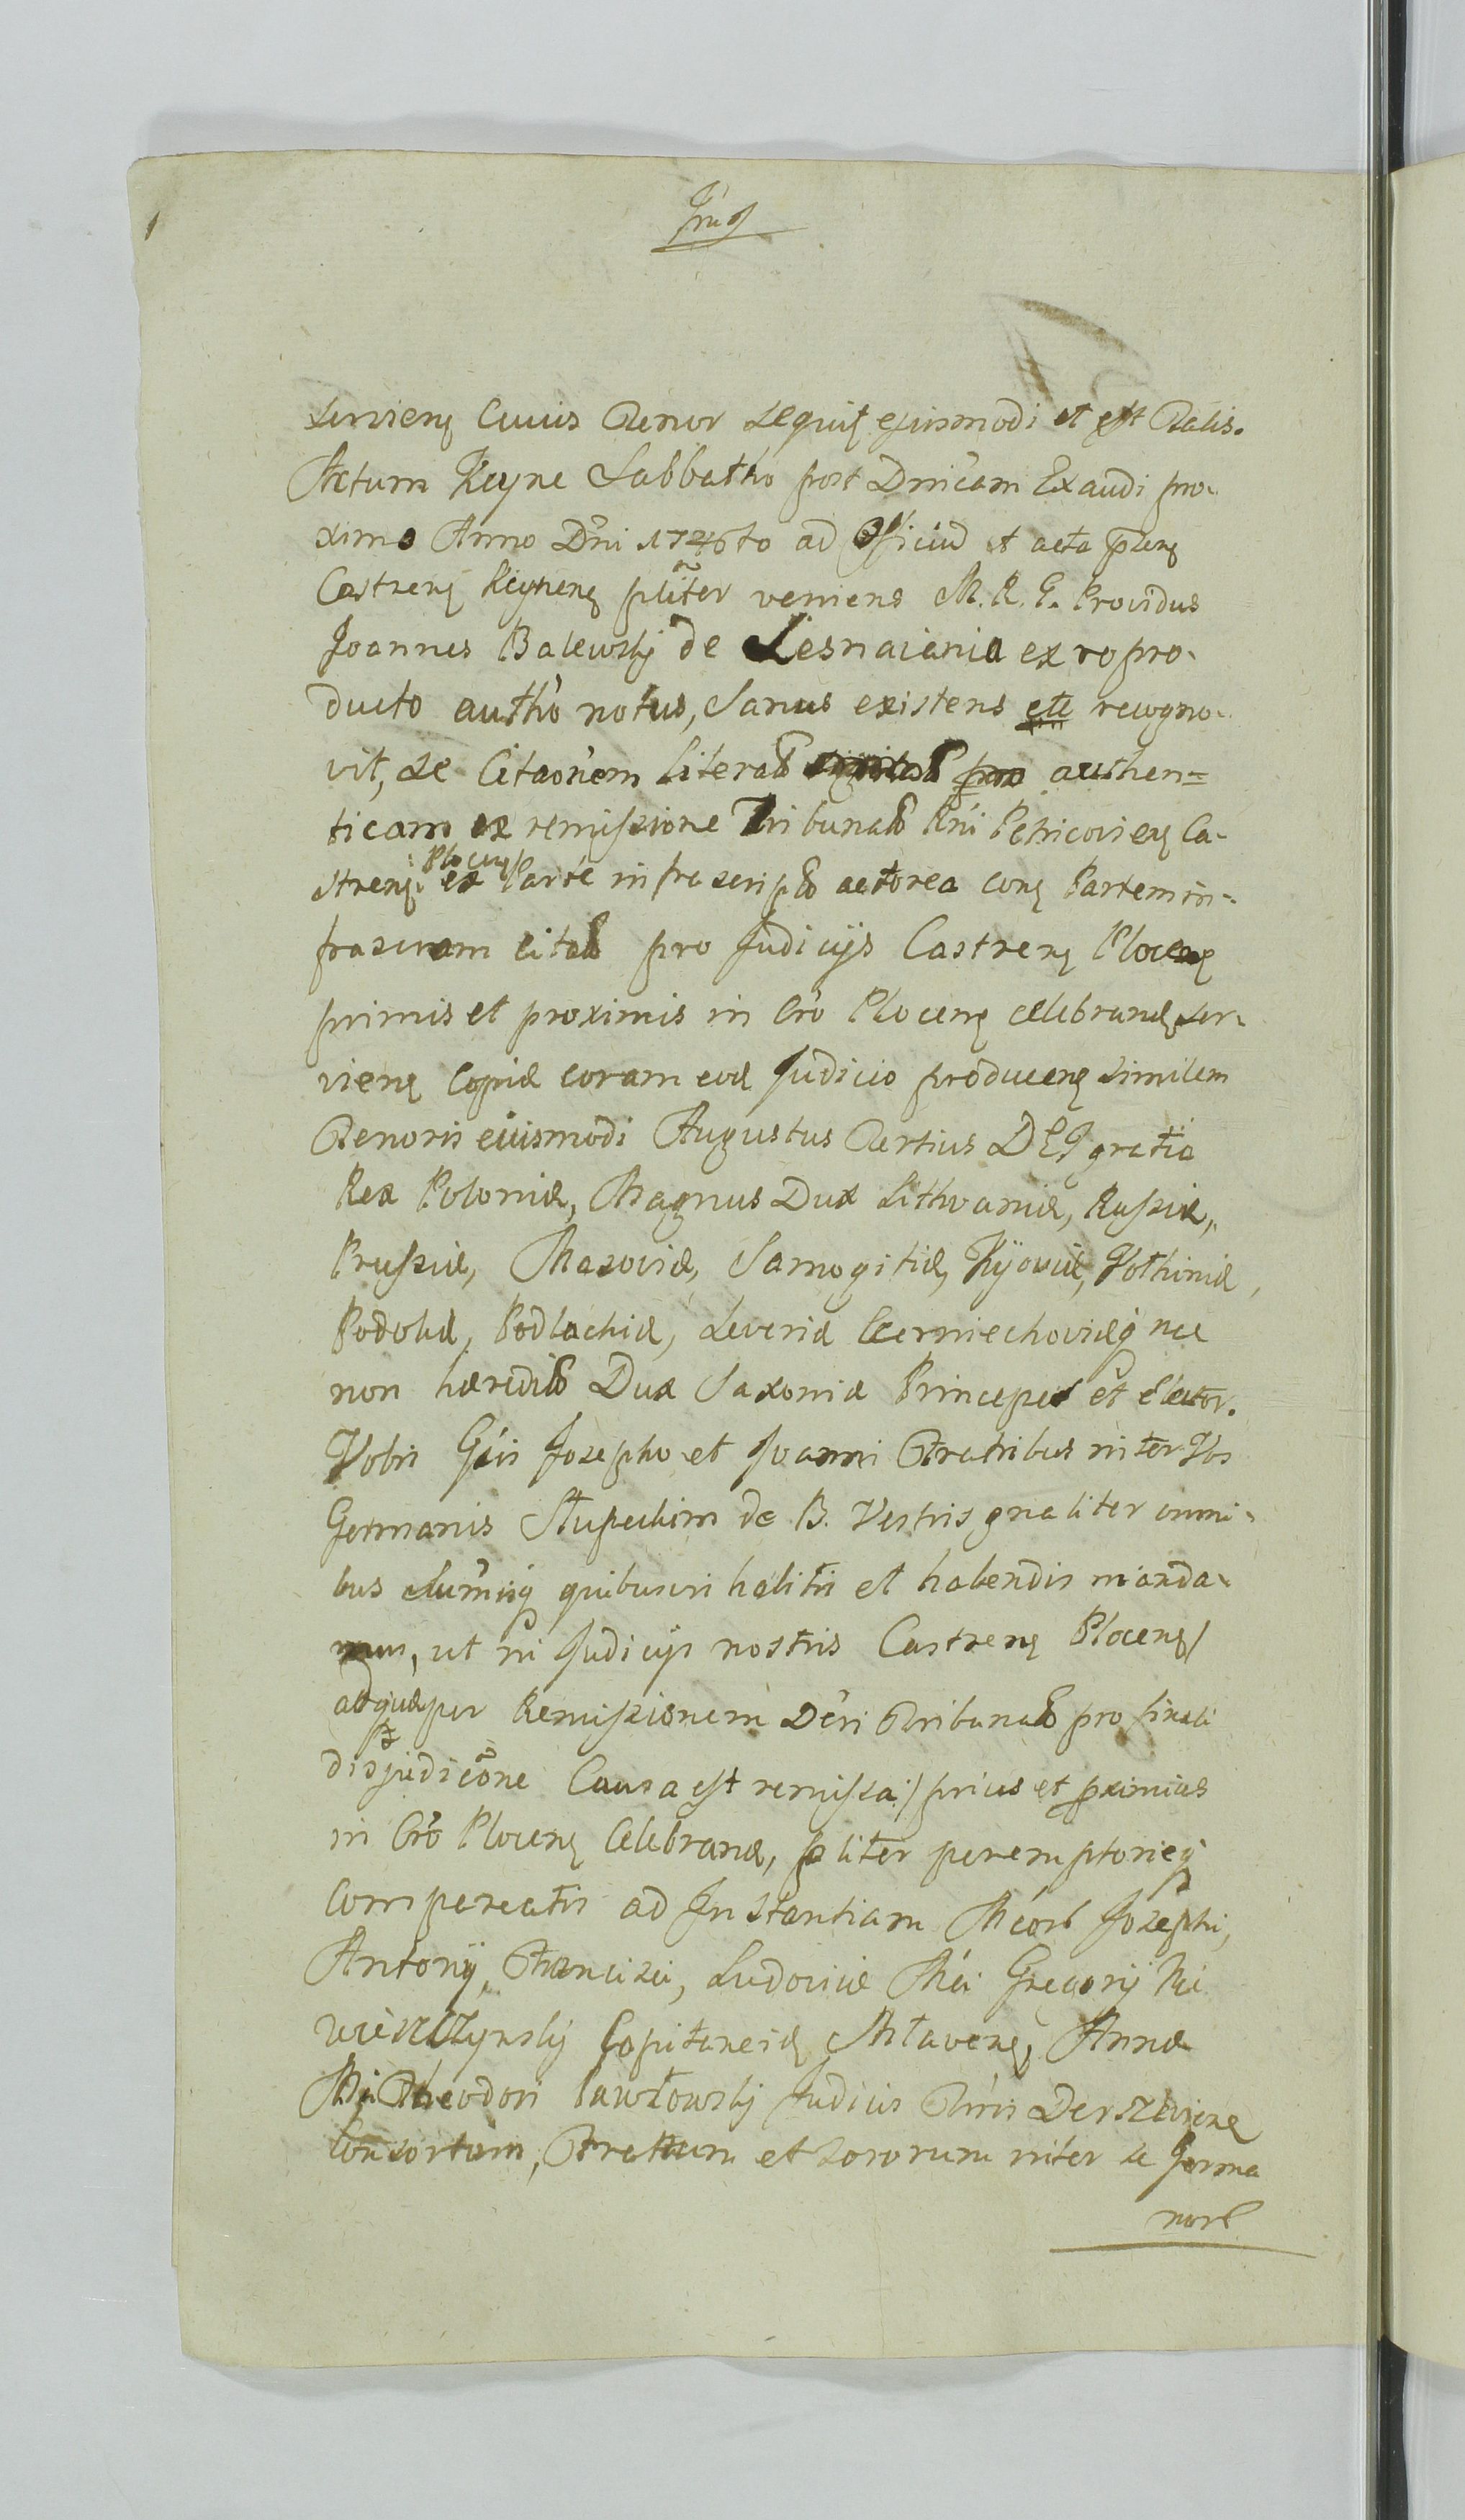 servienę Cuius Tenor sequit ejusmodi et est Talis.
Actum Keyne Sabbatho post Dnicam Exaudi pro-
ximo Anno Dni 1746to ad Officiu et acta pntę
Castrenę Keynenę pliter veniens M. R. G. Providus
Joannes Balewskj de Lesnaiania ex ro pro-
ducto autho notus, Sanus existens ete recogno-
vit, se Citaonem Literal authen=
ticam ex remissione Tribunal Rni Petricovienę Ca-
strenę Plocenę ex Parte infrascript actorea conę Partem in-
frascram citat pro Judicijs Castrenę Plocenę
primis et proximis in Cro Plocenę celebranę ser-
vienę Copiæ coram eod Judicio producenę similem
Tenoris eiusmodi Augustus Tertius DEI gratia
Rex Poloniæ, Magnus Dux Lithvaniæ, Russiæ,
Prussiæ, Masoviæ, Samogitiæ, Kÿoviæ, Volhiniæ,
Podoliæ, Podlachiæ, Severiæ Czerniechoviæq nec
non hæredit Dux Saxoniæ Princeps et Elector.
Vobis Gsis Josepho et Joanni Fratribus inter Vos
Germanis Stupeckim de B. Vestris gnaliter omni-
bus Sumisq quibusvis habitis et habendis manda-
mus, ut in Judicijs nostris Castrenę Plocenę/
ad quæ per Remissionem Dcri Tribunal pro finali
disjudicone Causa est remissa/ prius et pximius
in Cro Plocenę Celebrand, pliter peremptorieq
Compereatis ad Instantiam Mcorl Josephi,
Antonij, Francisci, Ludovicæ Mci Gregorij Nie
wiesczynskj Capitaneidę Mlavenę, Annæ
Mci Theodori Pawłowskj Judicis Trris Derszlavienę
Consortum, Fratrum et Sororum inter se Germa
norl